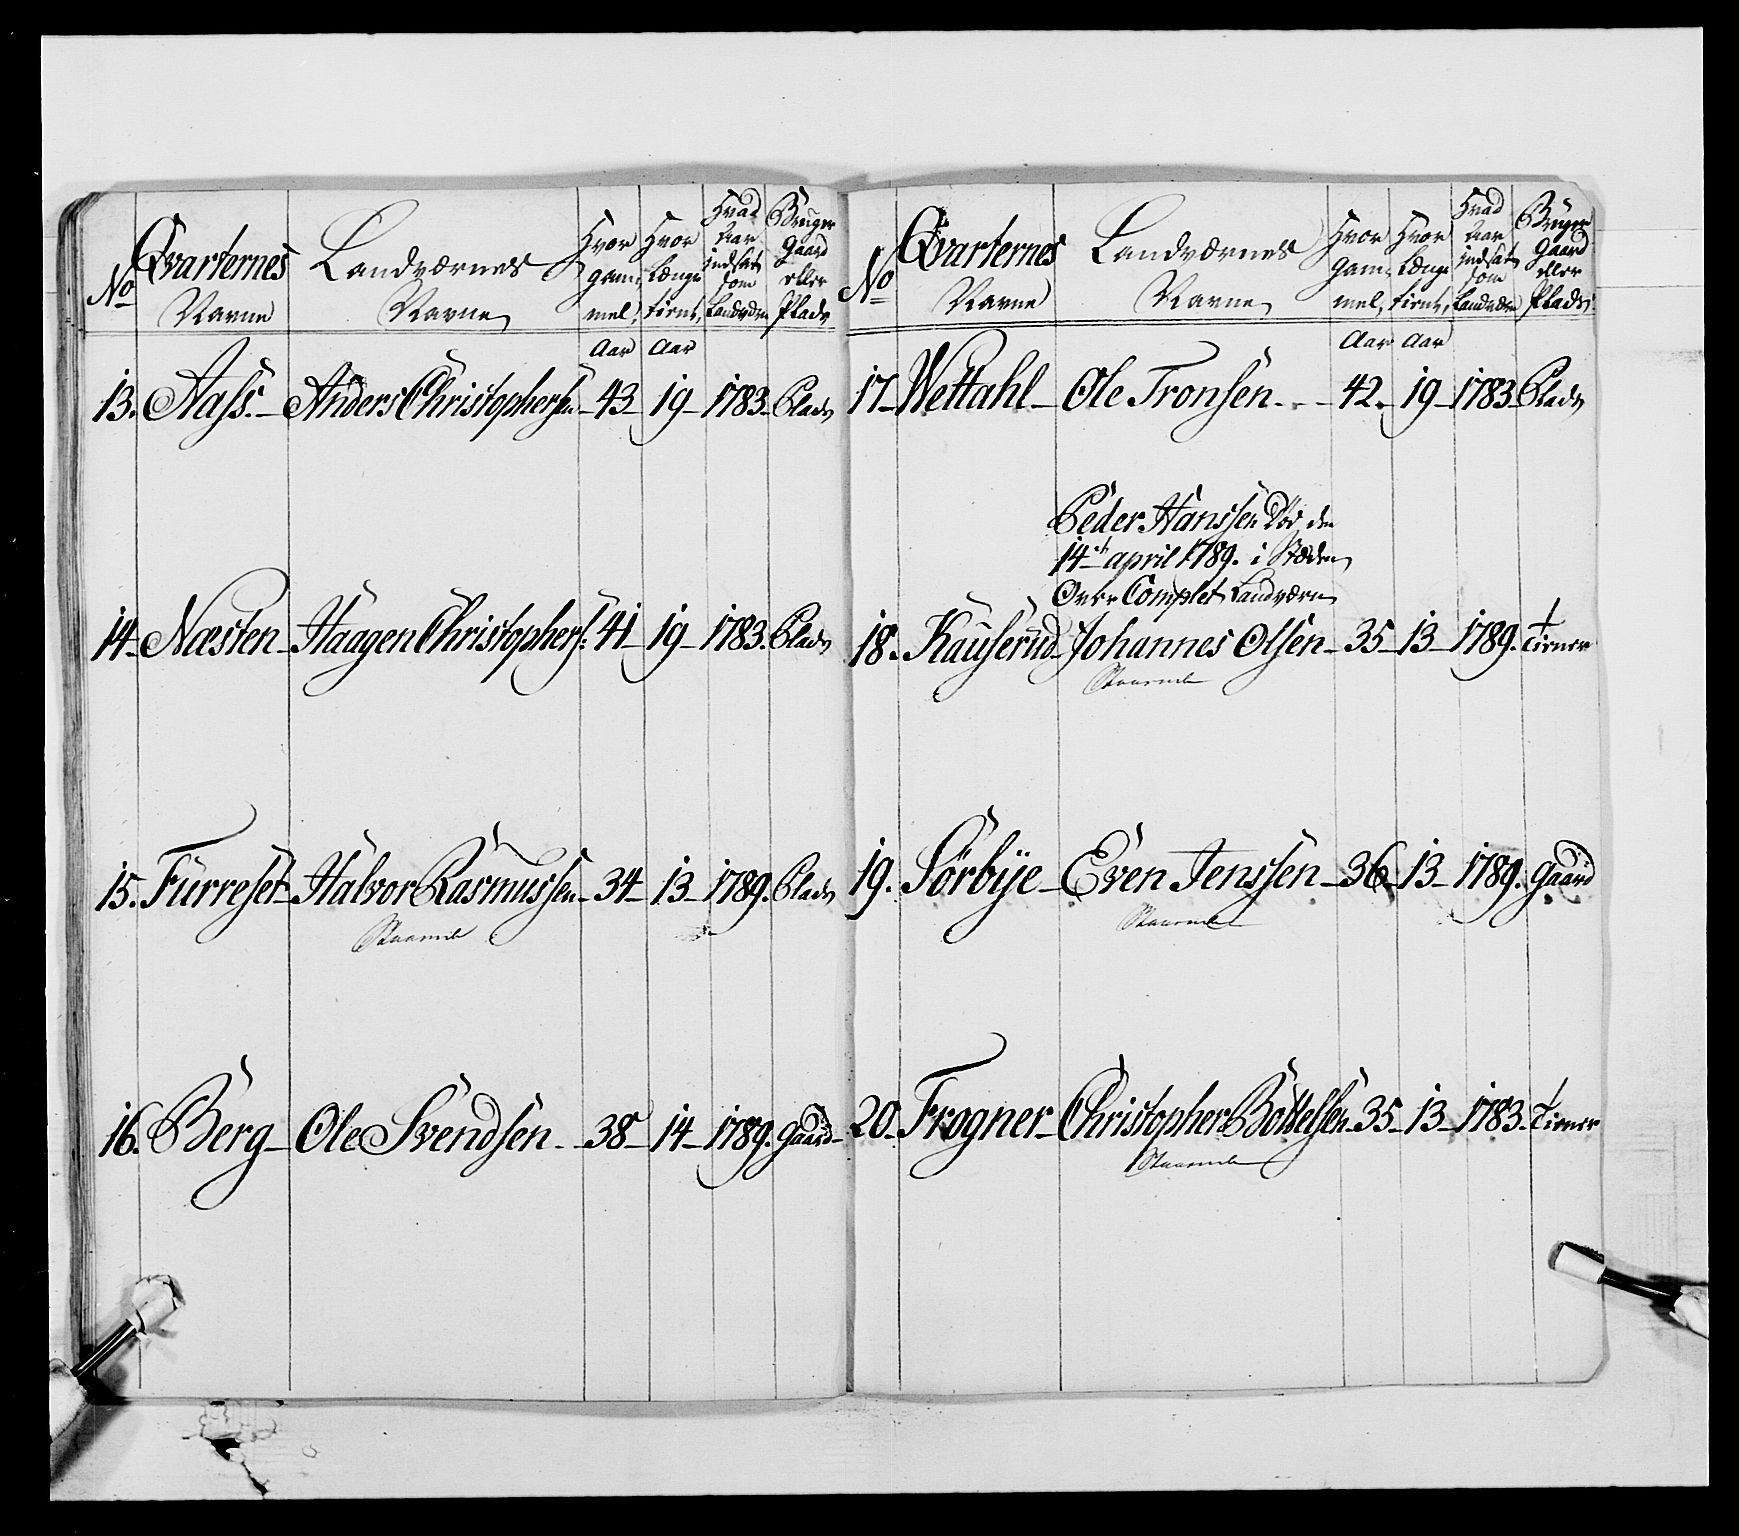 No Qvarternes Navne Landværnes Navne Hvor gammel, Hvor Længe tient, Hvad Aar indsat som Landværn Bruger Gaard eller Plads
Aar Aar
13. Aass. Anders Christophersn. 43 19 1783. Plads
14 Næsten Haagen Christophers: 41 19 1783. Plads
15. Furreset Halvor Rasmussen 34 13 1789. Plads
16. Berg Ole Svendsen 38 14 1789. Gaard
No Qvarternes Navne Landværnes Navne Hvor gammel, Hvor Længe tient, Hvad Aar indsat som Landværn Bruger Gaard eller Plads
Aar Aar
17 Wettahl Ole Tronsen 42. 19 1783 Plads
Peder Hanssen Død den
14de april 1789. i Stæden
Over Complet Landværn
18. Kauserud Johannes Olsen 35 13 1789. Tiener
19. Sörbye Even Jenssen 36 13 1789. Gaard
20. Frogner Christopher Bottelsen 35 13 1783 Tiener